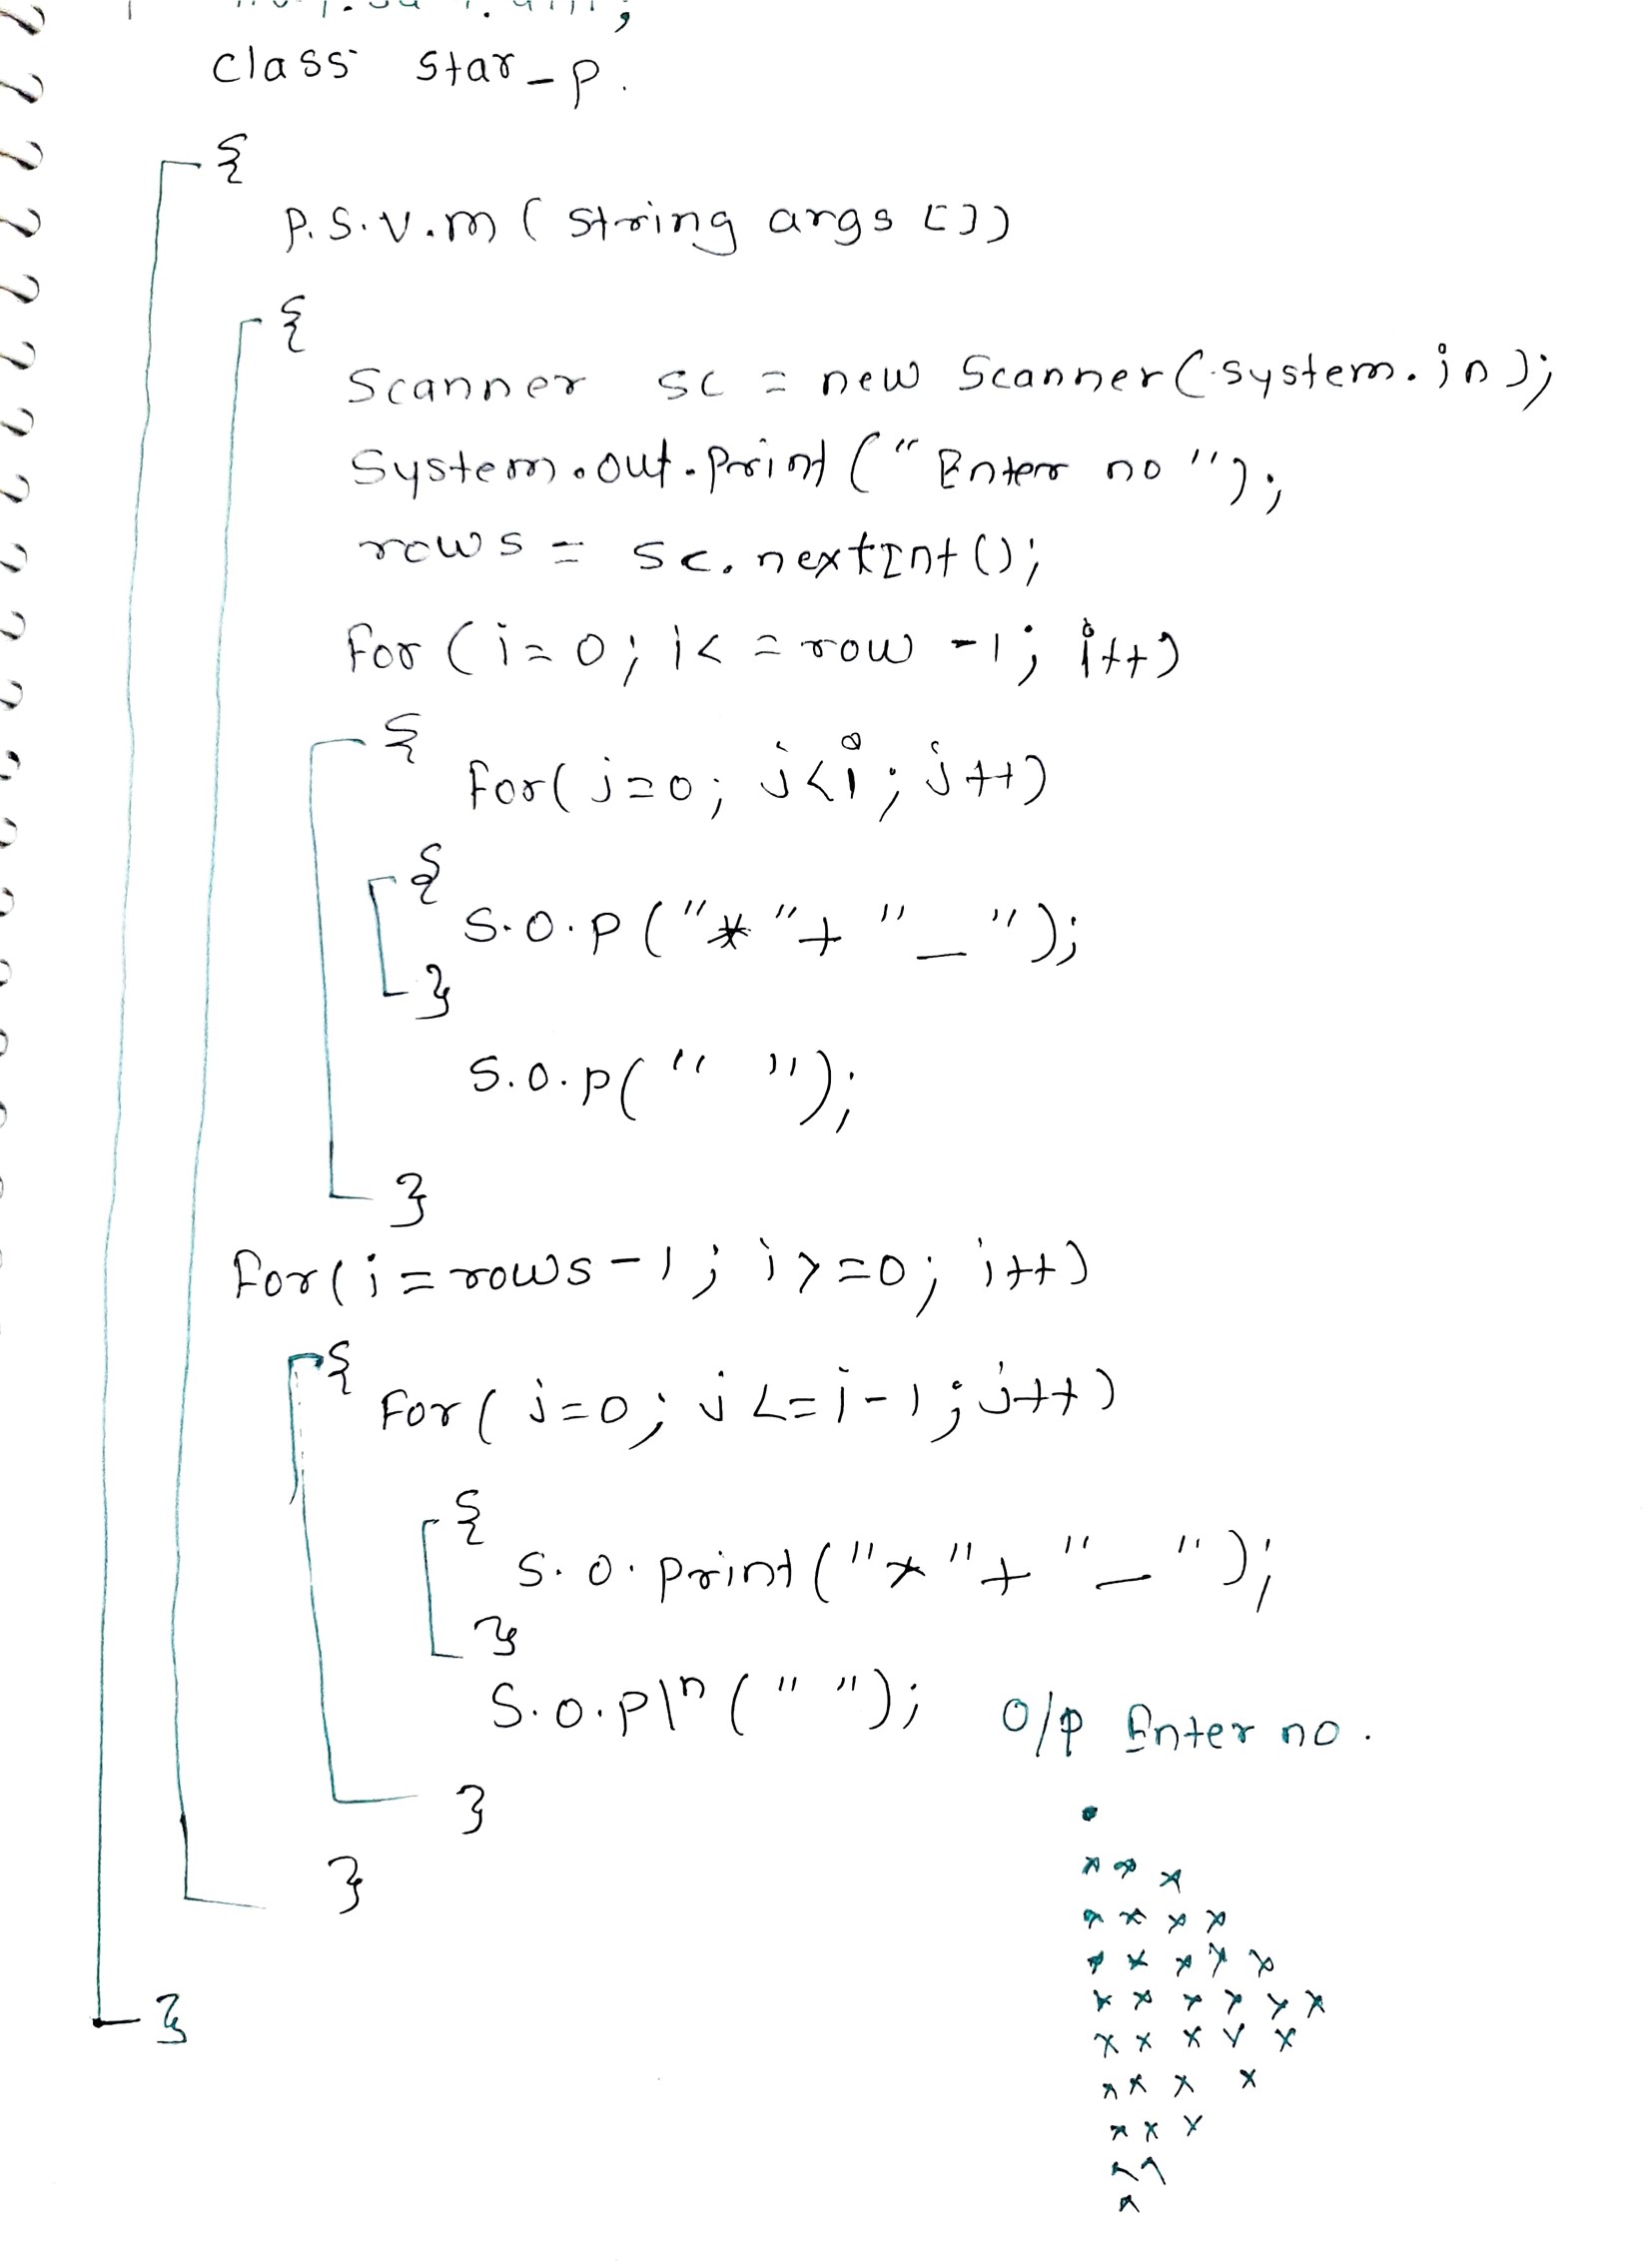 class star_p.
{
P.S.V.m ( string args [])
{
Scanner sc = new Scanner(system.in);
System.out.print ("Enter no");
rows = sc.nextInt();
for ( i=0; i< = row -1; i++)
{
for( j=0; j<i; j++)
{
S.O.P ("*"+ "_ ");
}
S.O.P( " ");
}
for( i = rows - 1; i>=0; i++)
{
for( j=0; j<=i-1; j++)
{
S.O.print("*"+ "_");
}
S.O.pln (" "); O/P Enter no.
}
}
}
•
* * *
* * * *
* * * * *
* * * * * *
* * * * *
* * * *
* * *
* *
*